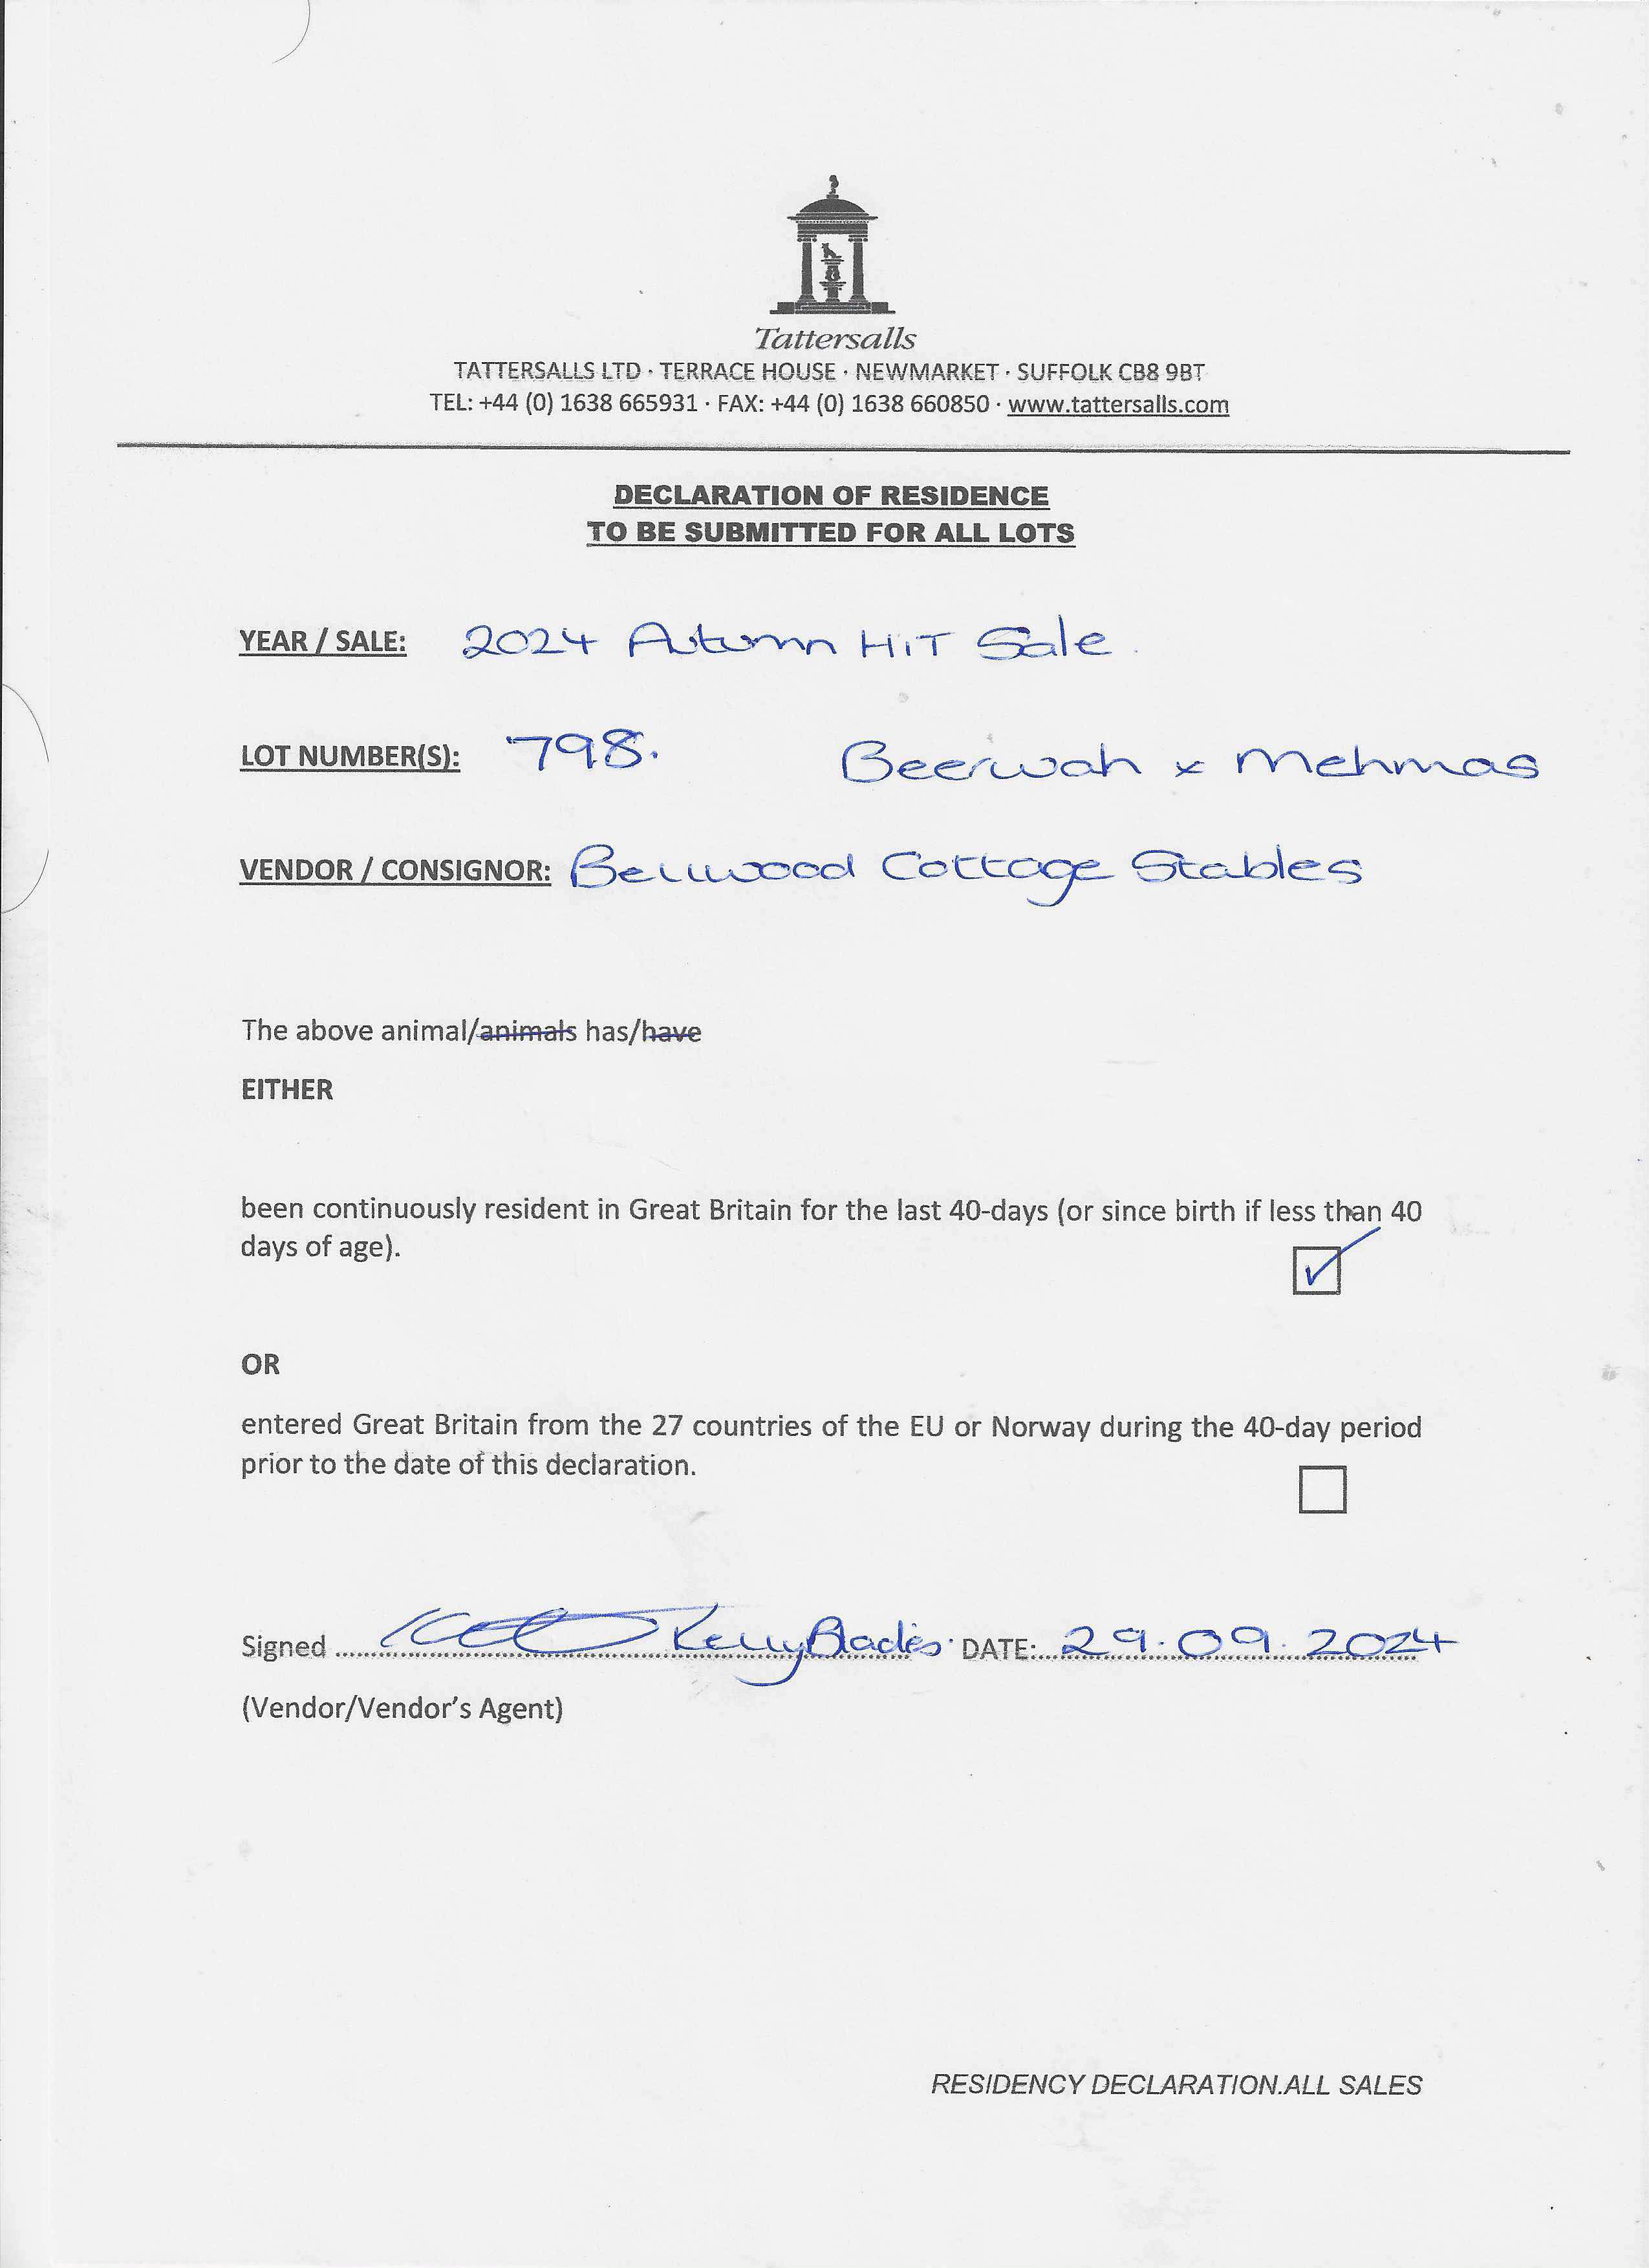 Tattersalls
TATTERSALLS LTD · TERRACE HOUSE · NEWMARKET · SUFFOLK CB8 9BT
TEL: +44 (0) 1638 665931 · FAX: +44 (0) 1638 660850 · www.tattersalls.com
DECLARATION OF RESIDENCE
TO BE SUBMITTED FOR ALL LOTS
YEAR / SALE: 2024 Autumn HiT Sale.
LOT NUMBER(S): 798. Beerwah x Mehmas
VENDOR / CONSIGNOR: Bellwood Cottage Stables
The above animal/animals has/have
EITHER
been continuously resident in Great Britain for the last 40-days (or since birth if less than 40
days of age).
OR
entered Great Britain from the 27 countries of the EU or Norway during the 40-day period
prior to the date of this declaration.
Signed Kelly Blades. DATE: 29.09.2024
(Vendor/Vendor's Agent)
RESIDENCY DECLARATION.ALL SALES